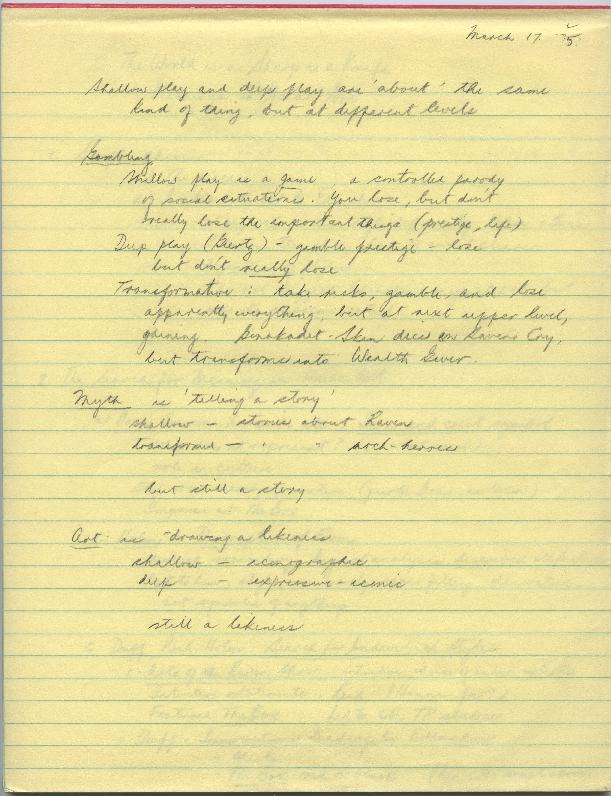 March 17
Shallow play and deep play are 'about' the same
kind of thing, but at different levels
Gambling
Shallow play is a game a controlled parody
of social situations. You lose, but don't
really lose the important things (prestige, life)
Deep play (Geertz) - gamble prestige - lose
but don't really lose
Transformative : take risks, gamble, and lose
apparently everything, but at next upper level,
gaining. Gonakadet-Skin dies on Ravens Cry,
but transforms into Wealth Giver.
Myth is 'telling a story'
shallow - stories about Raven
transformed - " " arch-heroes
but still a story
Art is - drawing a likeness
shallow - iconographic
deep - expressive-iconic
still a likeness